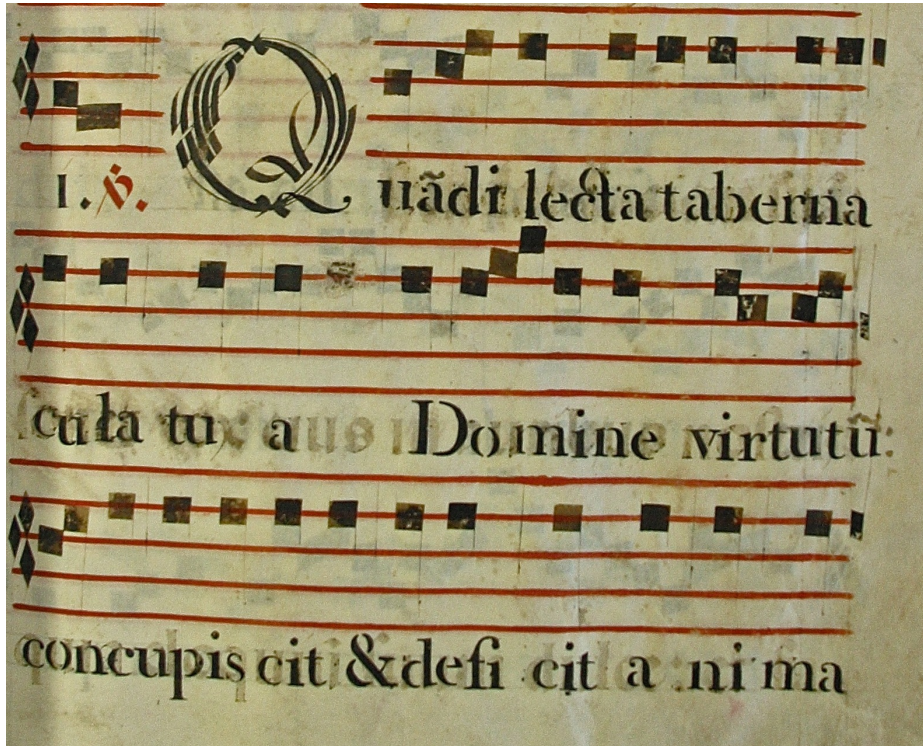 i. ℟. Quãdi lecta taberna
cula tu a Domine virtutũ:
concupis cit & defi cit a ni ma